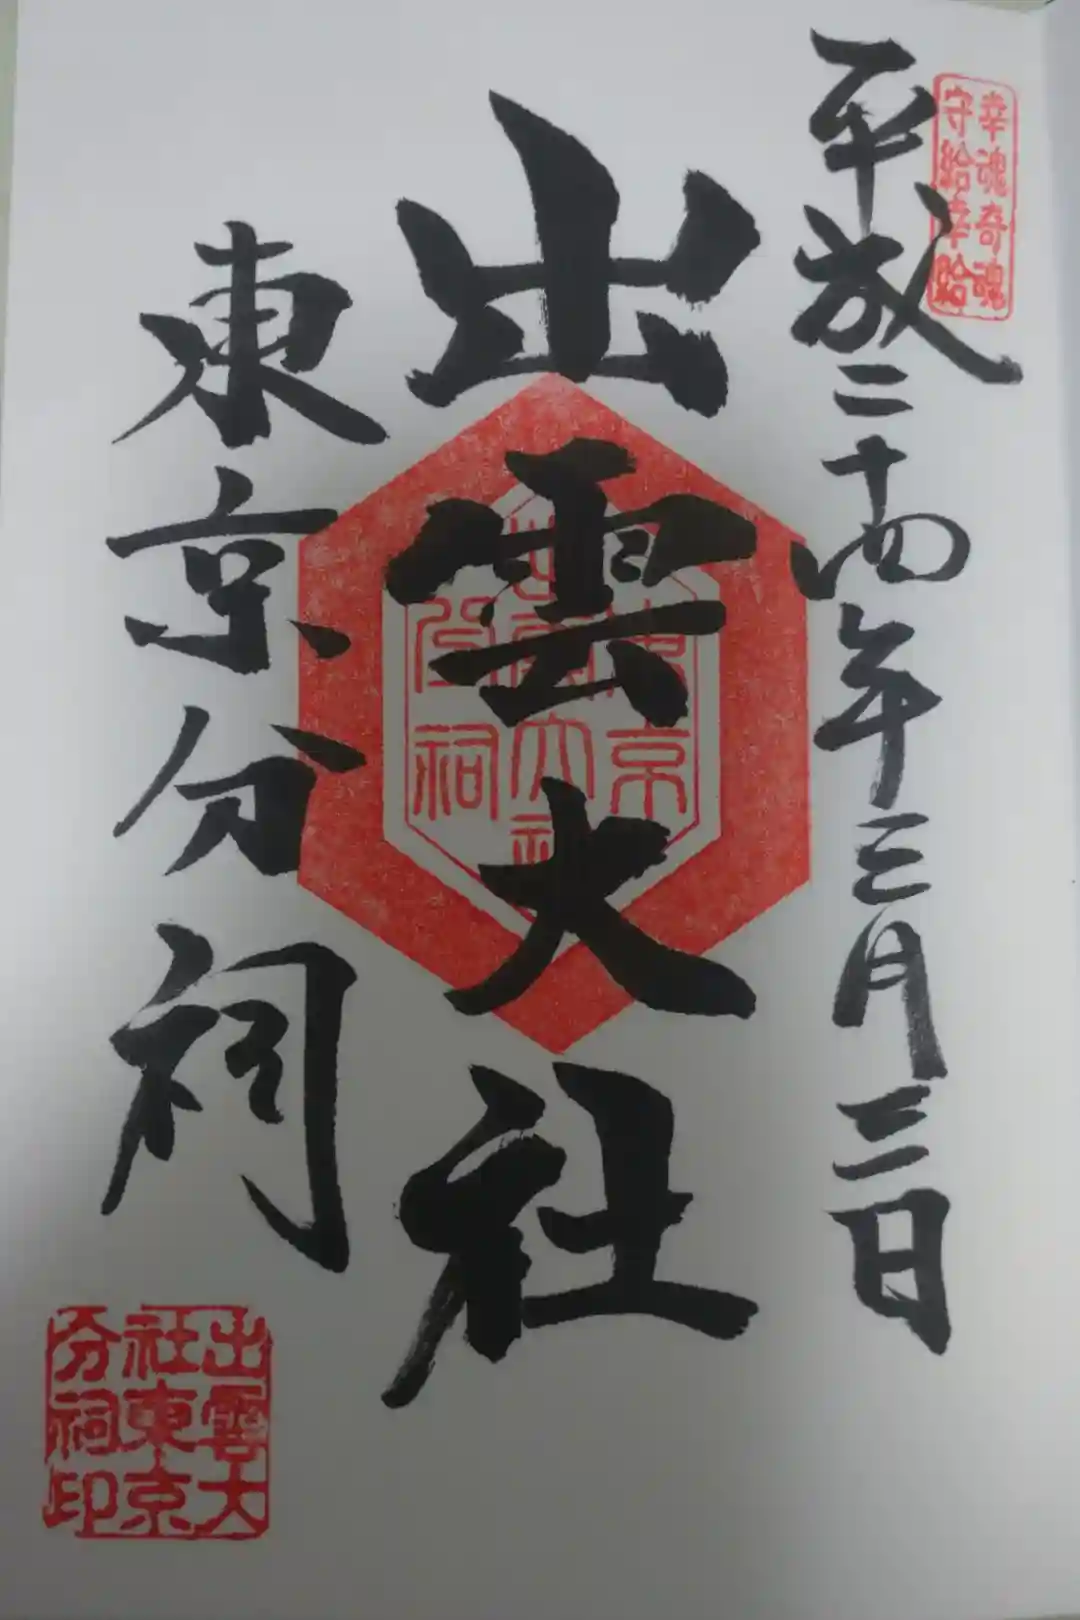 幸魂奇魂
守給幸給
平成二十四年三月三日
出雲大社
東京
出雲大社
分祠
東京分祠
出雲大
社東京
分祠印